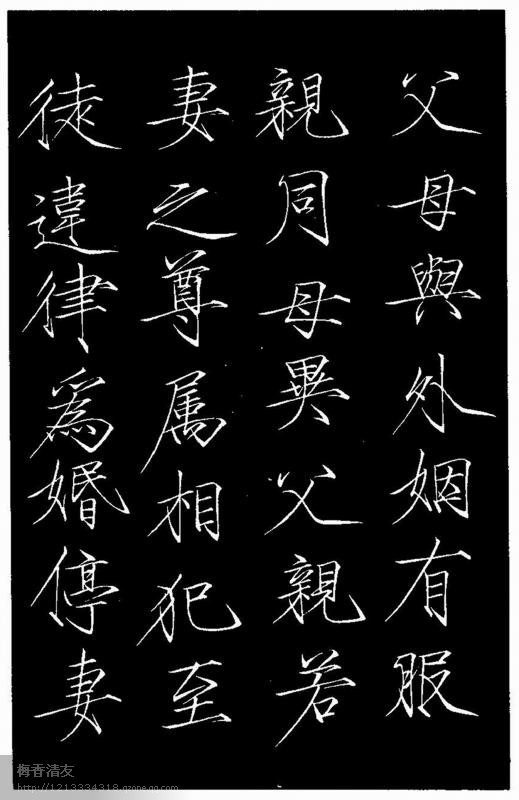 父母與外姻有服
親同母異父親若
妻之尊属相犯至
徒違律為婚停妻
梅香清友
http://1213334318.qzone.qq.com